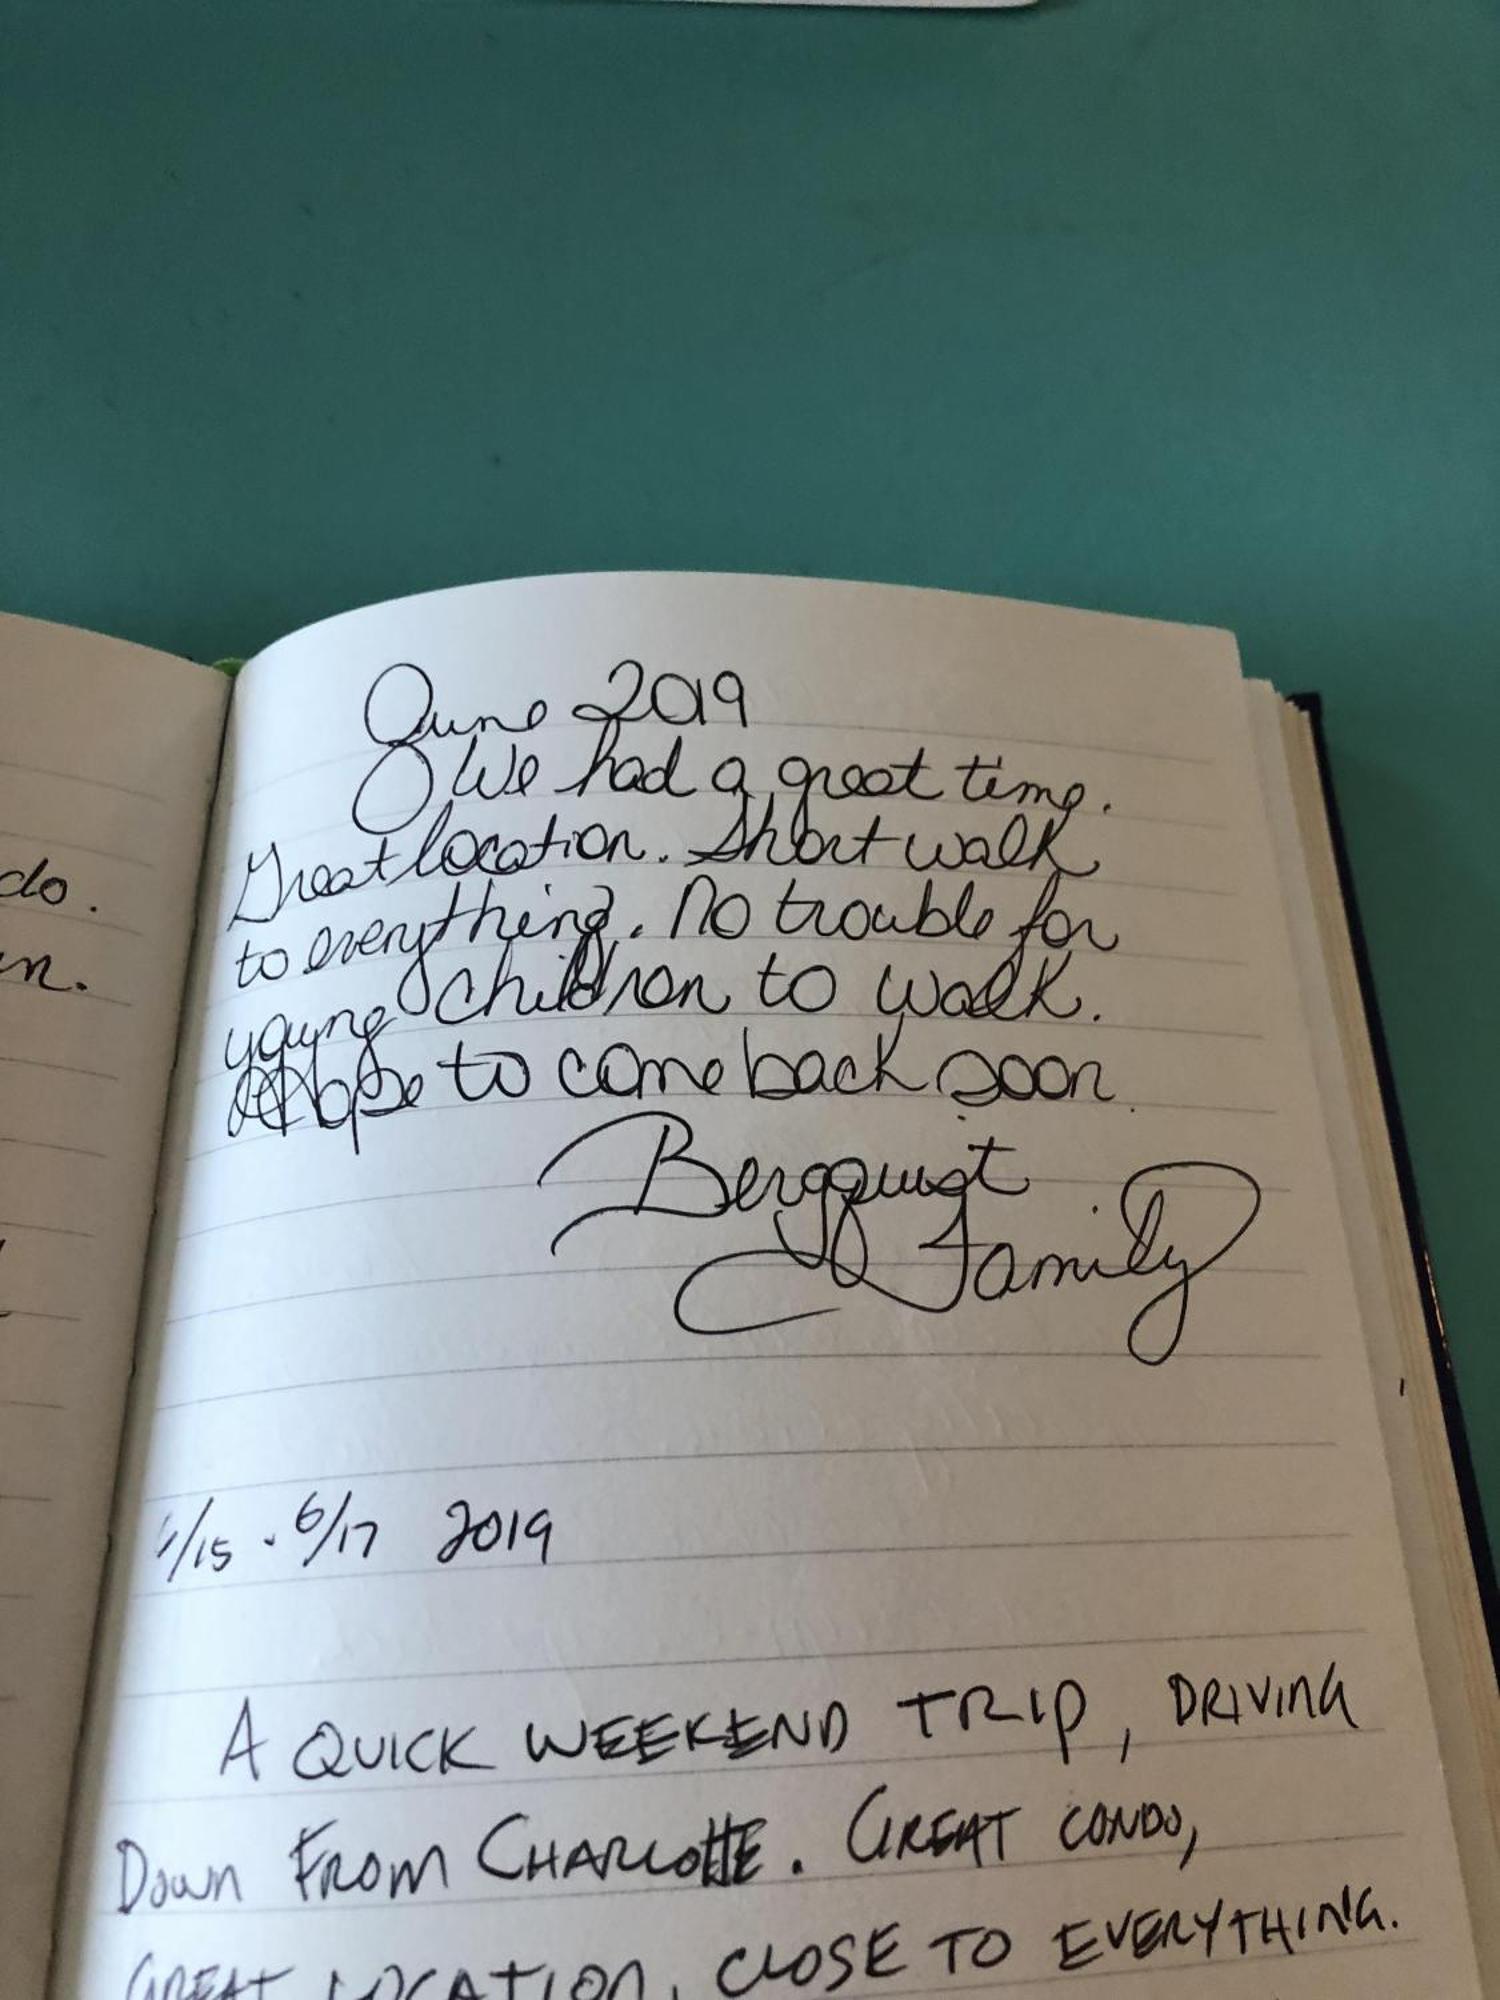 do.
June 2019
We had a great time.
Great location. Short walk
to everything. No trouble for
young children to walk.
Hope to come back soon.
Bergquist
Family
6/15 - 6/17 2019
A QUICK WEEKEND TRIP, DRIVING
DOWN FROM CHARLOTTE. GREAT CONDO,
GREAT LOCATION, CLOSE TO EVERYTHING.